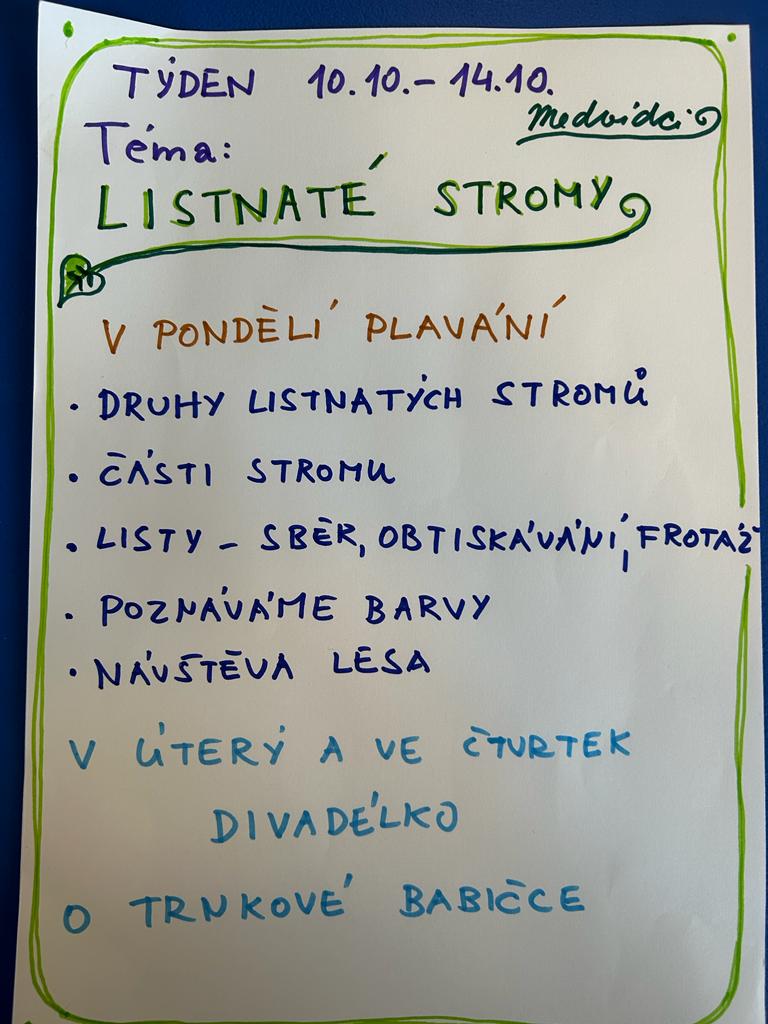 TÝDEN 10.10.- 14.10.
Medvídci
Téma:
LISTNATÉ STROMY
V PONDĚLÍ PLAVÁNÍ
• DRUHY LISTNATÝCH STROMŮ
• ČÁSTI STROMU
• LISTY - SBĚR, OBTISKÁVÁNÍ, FROTÁŽ
• POZNÁVÁME BARVY
• NÁVŠTĚVA LESA
V ÚTERÝ A VE ČTVRTEK
DIVADÉLKO
O TRNKOVÉ BABIČCE